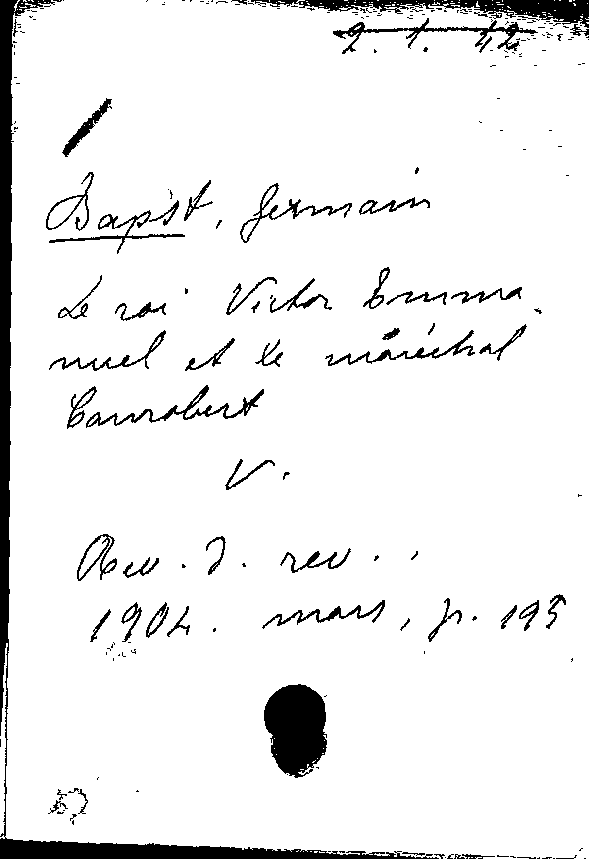 2. 1. 42
Bapst, Germain
Le roi Victor Emma-
nuel et le maréchal
Canrobert
V.
Rev. d. rev.,
1904. mars, p. 195